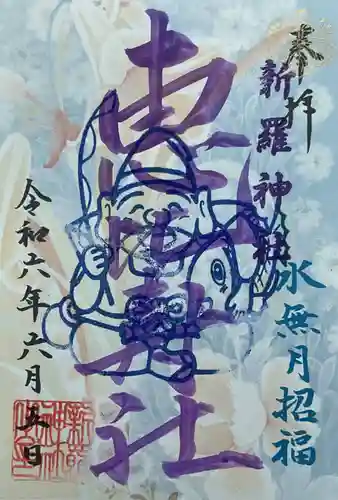 奉拝
新羅神社
恵比寿社
水無月招福
令和六年六月五日
新羅神社